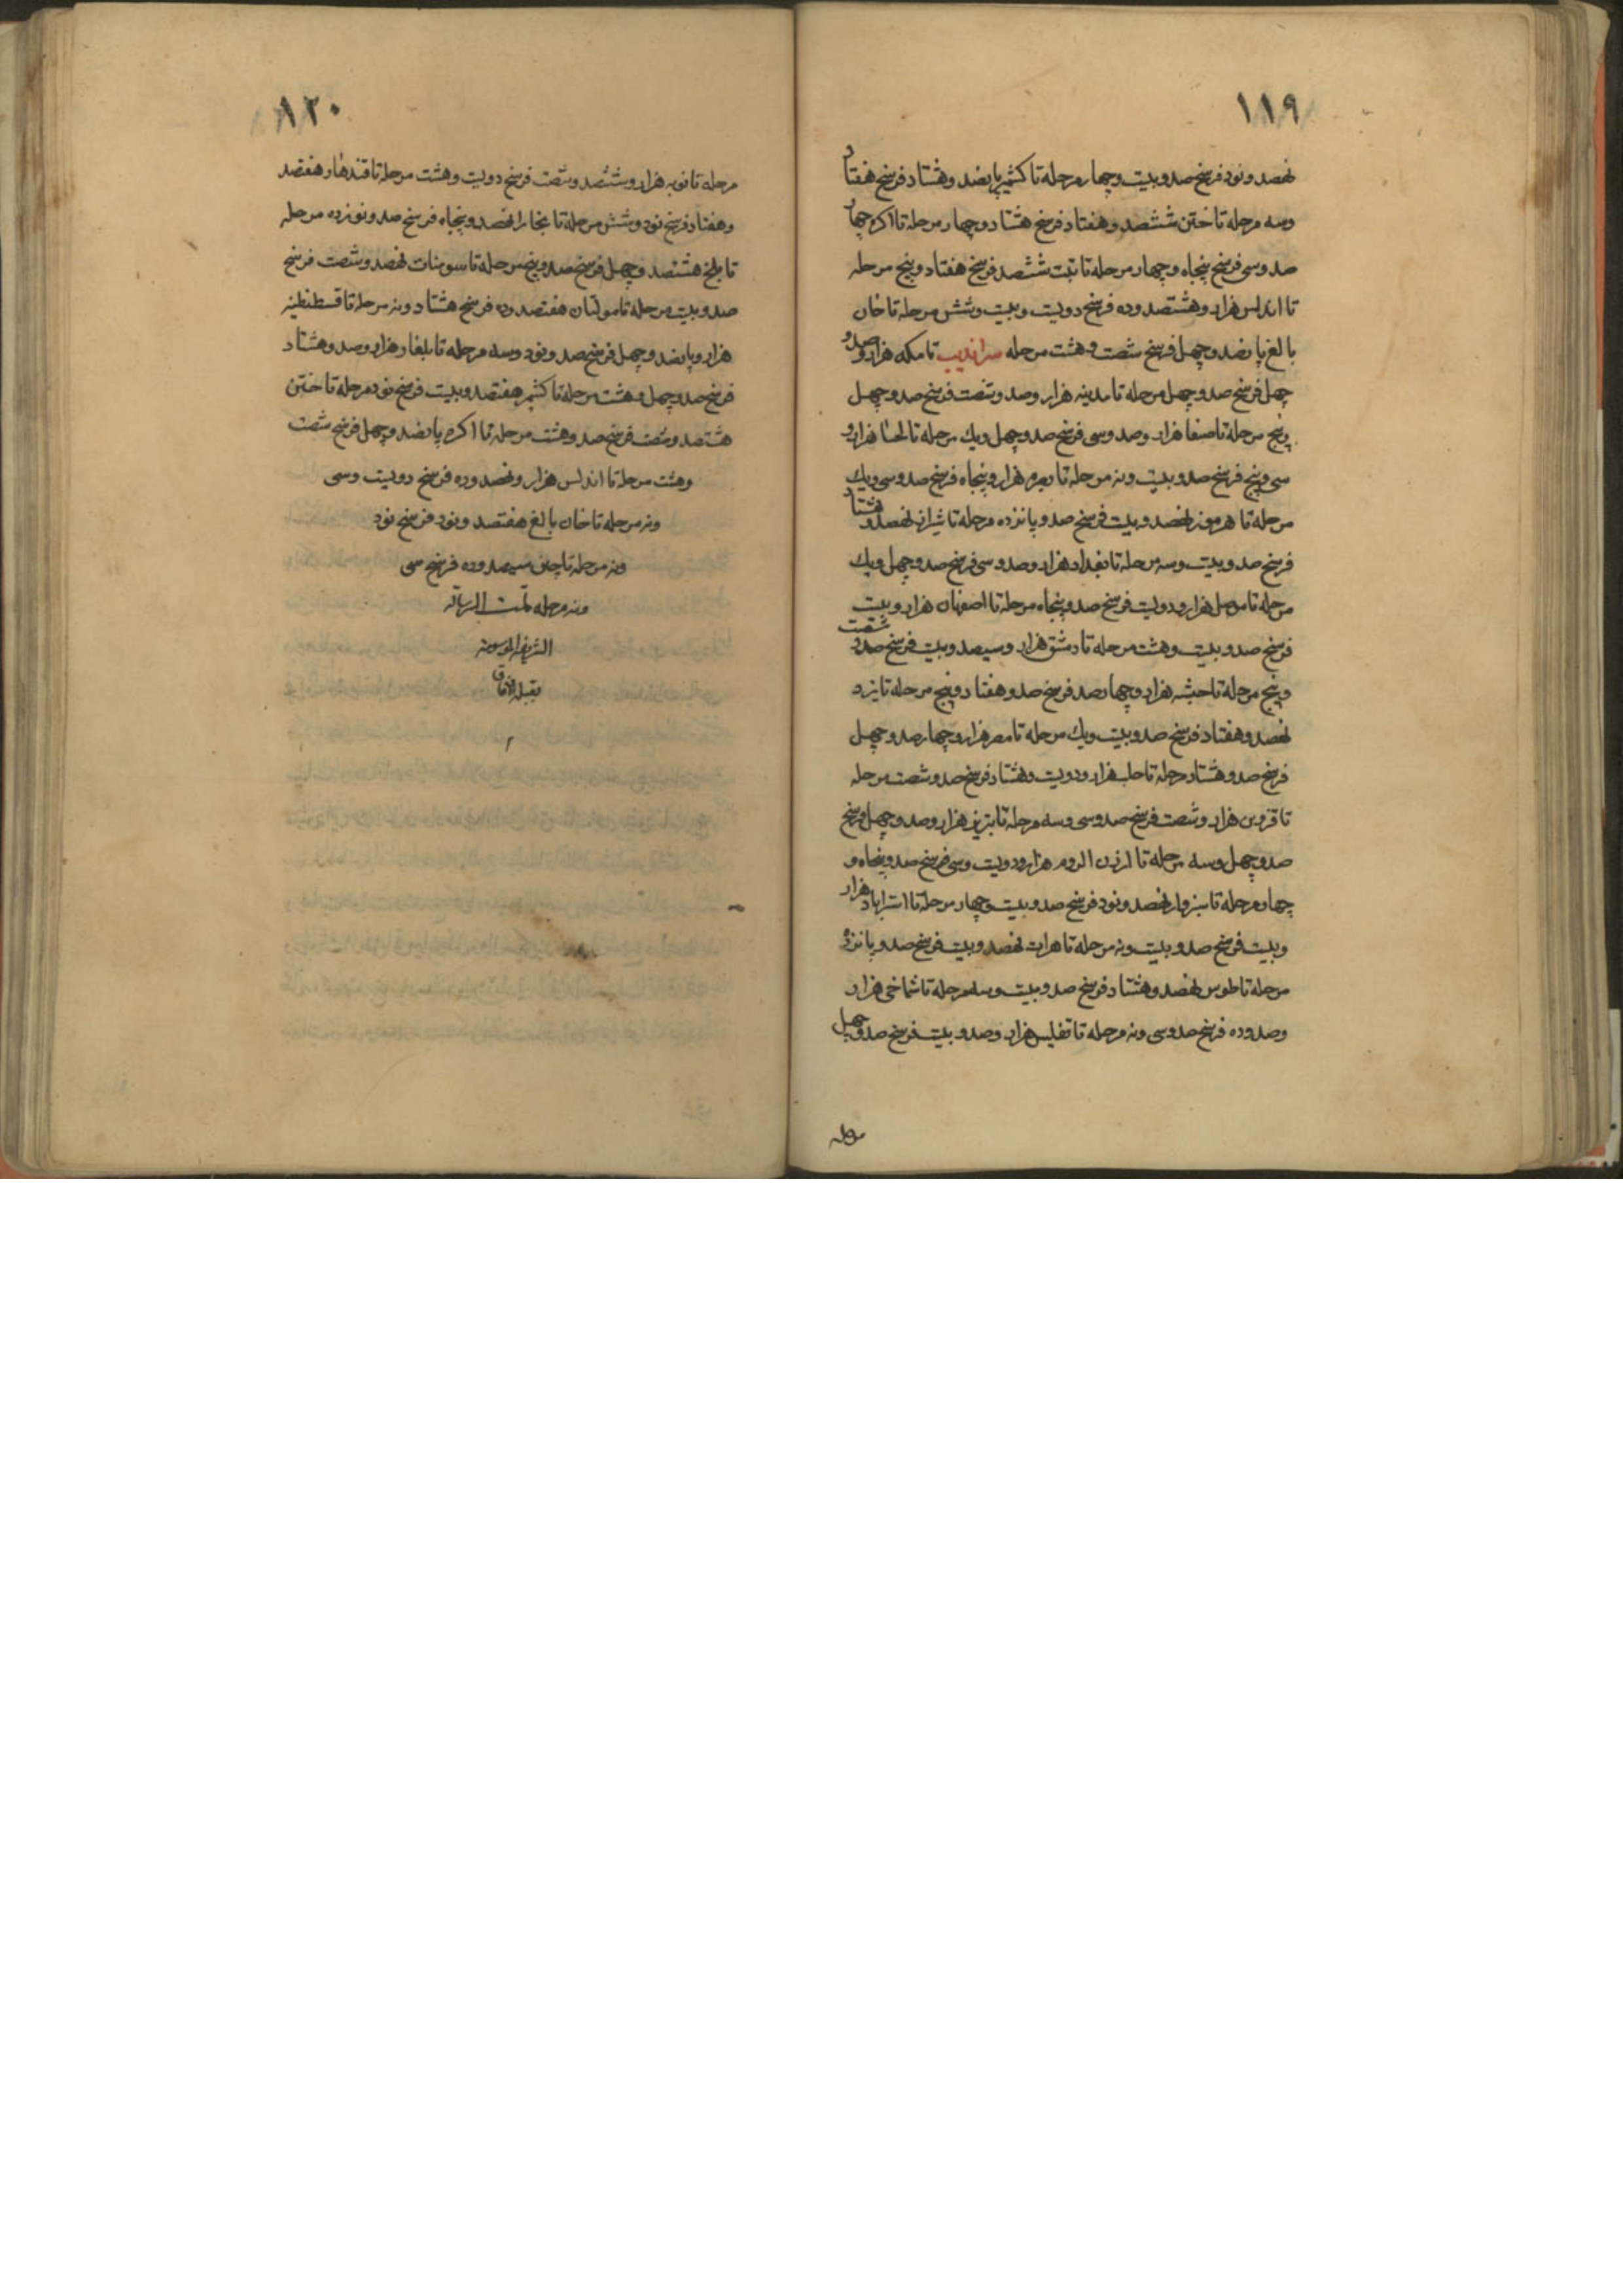 ۱۱۹
نهصد و نود فرسخ صد و بیست و چهار مرحله تا کشمیر پانصد و هشتاد فرسخ هفتاد
و سه مرحله تا ختن ششصد و هفتاد فرسخ هشتاد و چهار مرحله تا اکره چهار
صد و سی فرسخ پنجاه و چهار مرحله تا تبت ششصد فرسخ هفتاد و پنج مرحله
تا اندلس هزار و هشتصد و ده فرسخ دویست و بیست و شش مرحله تا خان
بالغ پانصد و چهل فرسخ شصت و هشت مرحله سراندیب تا مکه هزار و صد و
چهل فرسخ صد و چهل مرحله تا مدینه هزار و صد و شصت فرسخ صد و چهل
و پنج مرحله تا صنعا هزار و صد و سی فرسخ صد و چهل و یک مرحله تا لحسا هزار و
سی و پنج فرسخ صد و بیست و نه مرحله تا هزار و پنجاه فرسخ صد و سی و یک
مرحله تا هرموز نهصد و بیست فرسخ صد و پانزده مرحله تا شیراز نهصد و هشتاد
فرسخ صد و بیست و سه مرحله تا بغداد هزار و صد و سی فرسخ صد و چهل و یک
مرحله تا موصل هزار و دویست فرسخ صد و پنجاه مرحله تا اصفهان هزار و بیست
فرسخ صد و بیست و هشت مرحله تا دمشق هزار و سیصد و بیست فرسخ صد و شصت
و پنج مرحله تا حبشه هزار و چهارصد فرسخ صد و هفتاد و پنج مرحله تا یزد
نهصد و هفتاد فرسخ صد و بیست و یک مرحله تا مصر هزار و چهارصد و چهل
فرسخ صد و هشتاد مرحله تا حلب هزار و دویست و هشتاد فرسخ صد و شصت مرحله
تا قزوین هزار و شصت فرسخ صد و سی و سه مرحله تا تبریز هزار و صد و چهل فرسخ
صد و چهل و سه مرحله تا ارزن الروم هزار و دویست و سی فرسخ صد و پنجاه و
چهار مرحله تا سبزوار نهصد و نود فرسخ صد و بیست و چهار مرحله تا استراباد هزار
و بیست فرسخ صد و بیست و نه مرحله تا هرات نهصد و بیست فرسخ صد و پانزده
مرحله تا طوس نهصد و هشتاد فرسخ صد و بیست و سه مرحله تا شماخی هزار
و صد و ده فرسخ صد و سی و نه مرحله تا تفلیس هزار و صد و بیست فرسخ صد و چهل
مرحله
۱۲۰
مرحله تا نوبه هزار و ششصد و شصت فرسخ دویست و هشت مرحله تا قندهار هفتصد
و هفتاد فرسخ نود و شش مرحله تا بخارا نهصد و پنجاه فرسخ صد و نوزده مرحله
تا بلخ هشتصد و چهل فرسخ صد و پنج مرحله تا سومنات نهصد و شصت فرسخ
صد و بیست مرحله تا مولتان هفتصد و ده فرسخ هشتاد و نه مرحله تا قسطنطنیه
هزار و پانصد و چهل فرسخ صد و نود و سه مرحله تا بلغار هزار و صد و هشتاد
فرسخ صد و چهل و هشت مرحله تا کشمیر هفتصد و بیست فرسخ نود مرحله تا ختن
هشتصد و شصت فرسخ صد و هشت مرحله تا اکره پانصد و چهل فرسخ شصت
و هشت مرحله تا اندلس هزار و نهصد و ده فرسخ دویست و سی
و نه مرحله تا خان بالغ هفتصد و نود فرسخ نود
و نه مرحله تا چین سیصد و ده فرسخ سی
و نه مرحله تمت الرسالة
الشریفه الموسومة
بقبلة الآفاق